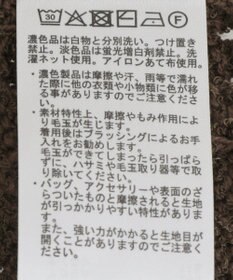 30
F
濃色品は白物と分別洗い。つけ置き
禁止。淡色品は蛍光増白剤禁止。洗
濯ネット使用。アイロンあて布使用。
・濃色製品は摩擦や汗、雨等で濡れ
た際に他の衣類や小物類に色が移
る事がありますのでご注意くださ
い。
・素材特性上、摩擦やもみ作用によ
り毛玉が生じます。
着用後はブラッシングによるお手
入れをお勧めします。
毛玉ができてしまったら引っぱら
ずに、ハサミや毛玉取り器等で取
り除いてください。
・バッグ、アクセサリーや表面のざ
らついたものと摩擦されると生地
が引っかかりやすい特性がありま
す。
また、強い力がかかると生地目が
開くことがありますのでご注意く
ださい。